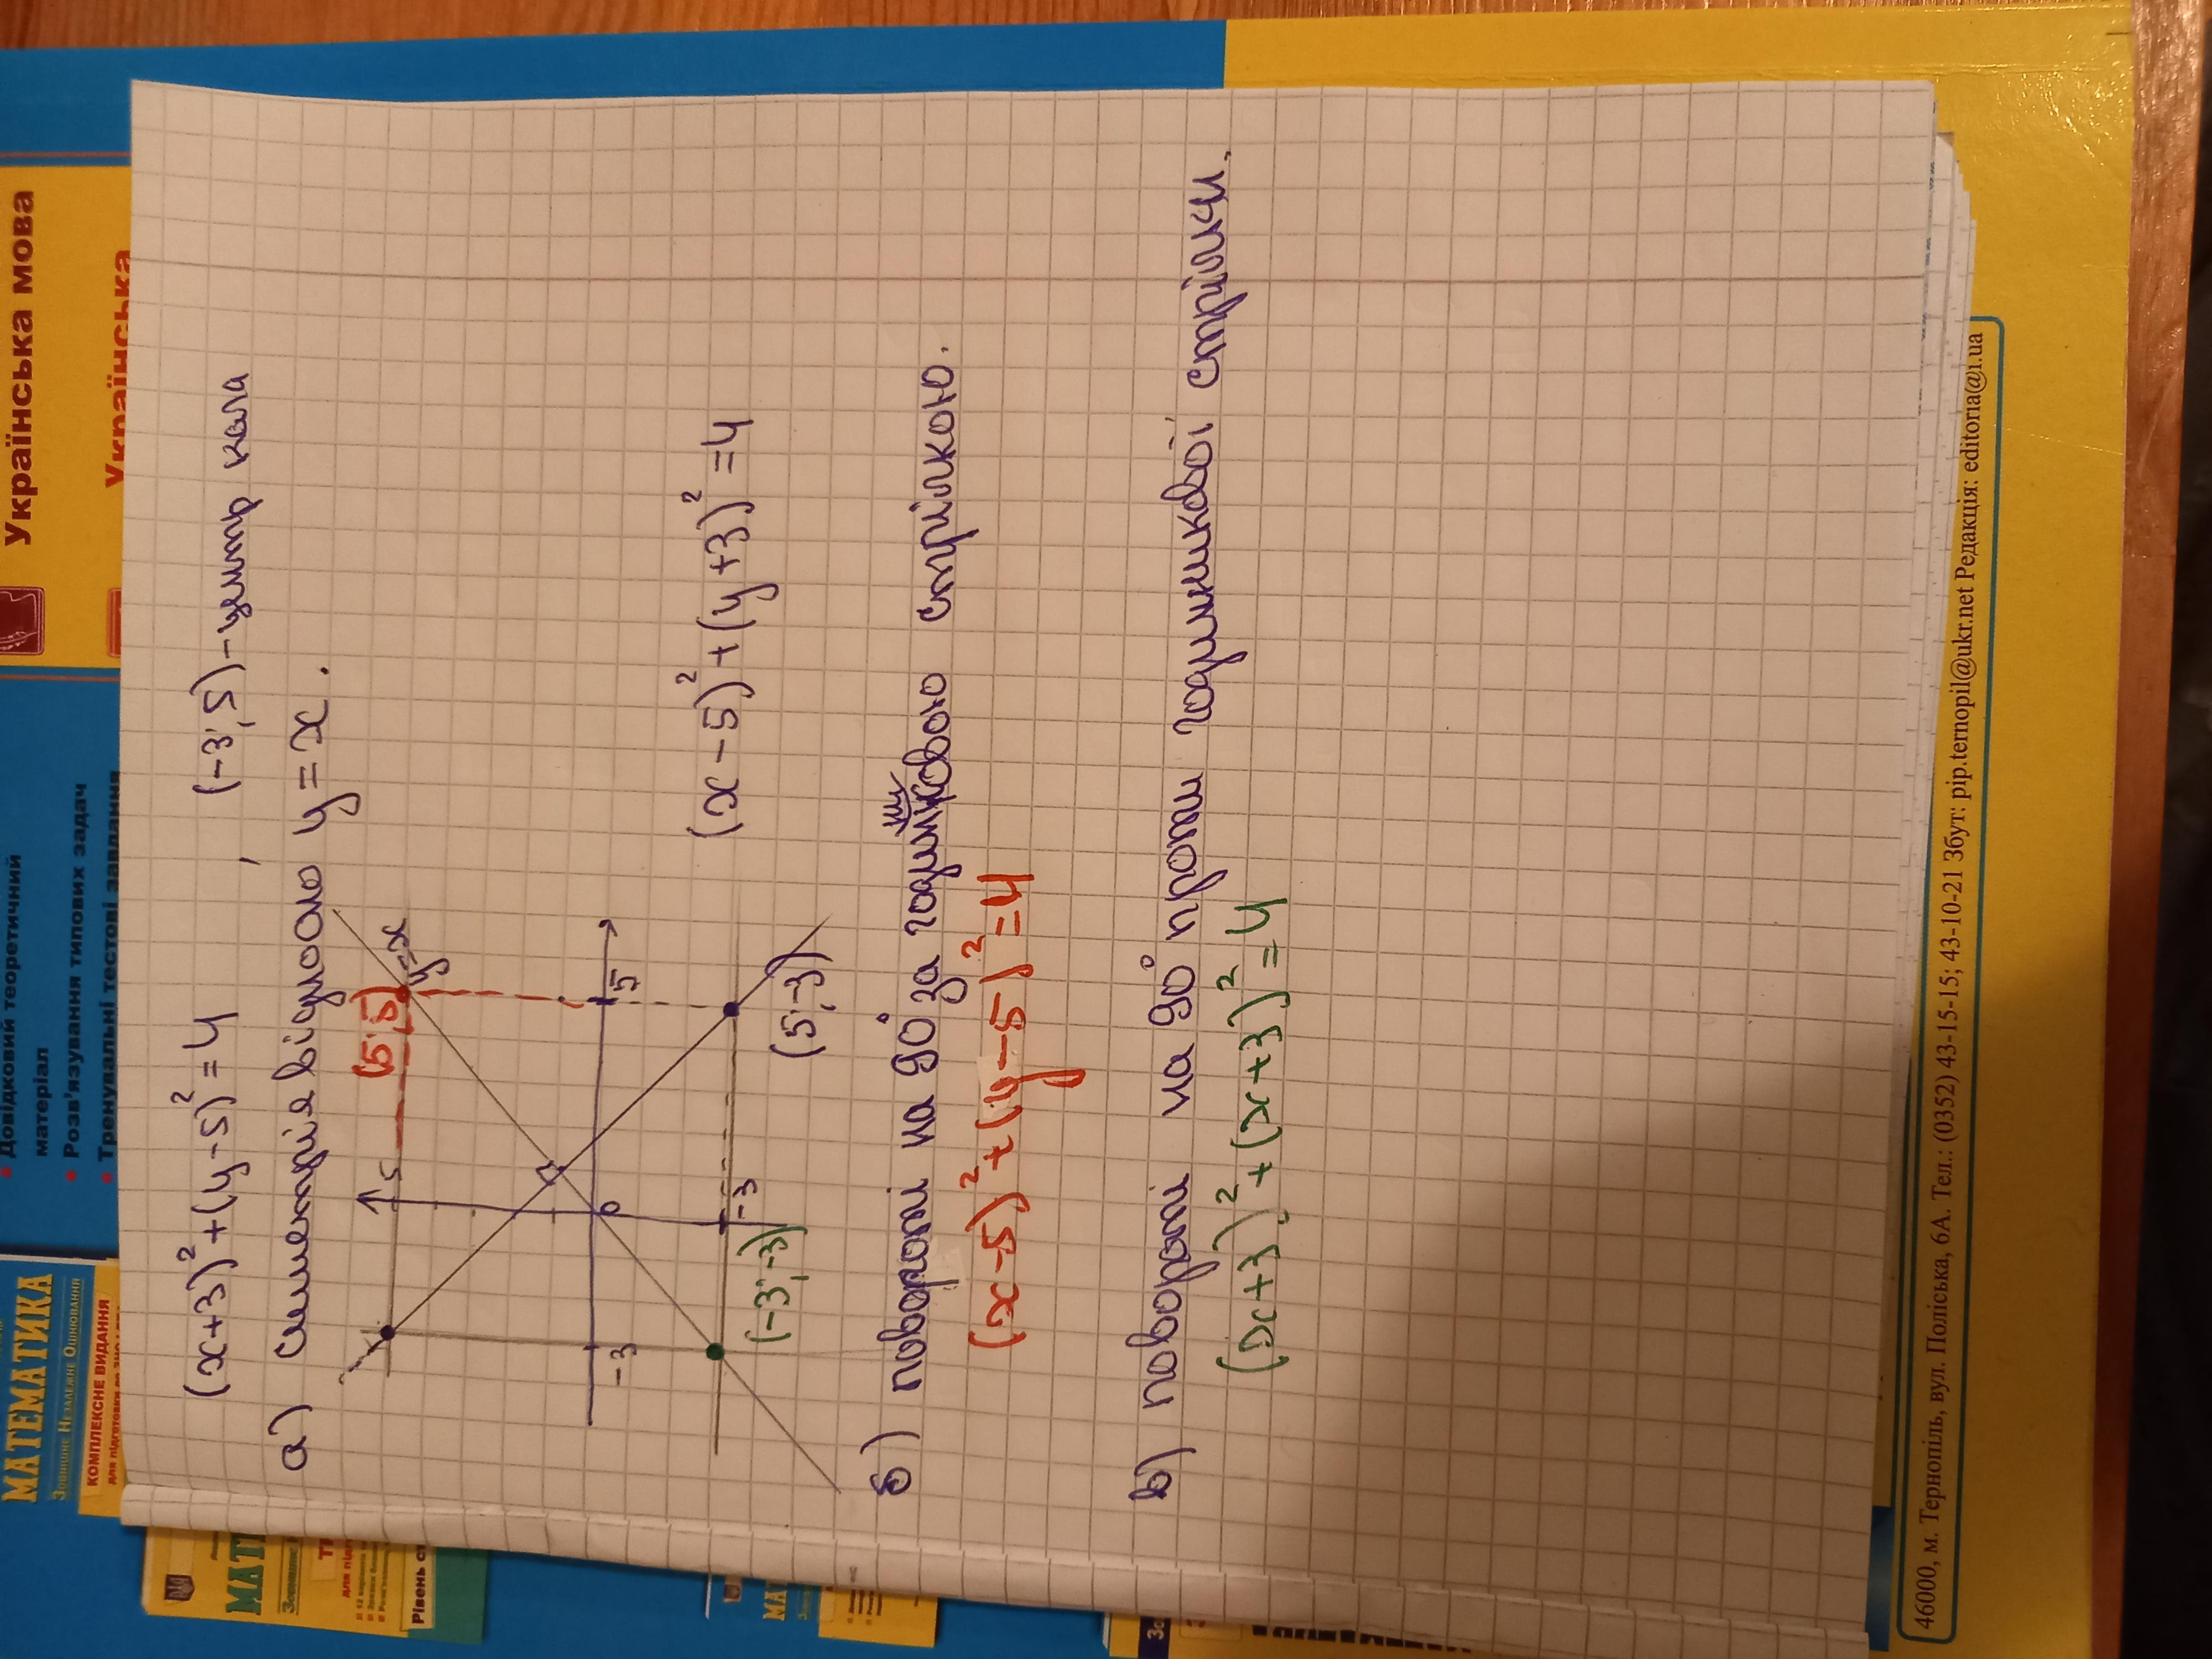 (x+3)²+(y-5)²=4 , (-3;5)-центр кола
а) симетрія відносно y=x.
(5;5)
y=x
5
0
5
-3
-3
(-3;-3)
(5;-3)
(x-5)²+(y+3)²=4
ни
б) повороті на 90° за годинковою стрілкою.
(x-5)²+(y-5)²=4
в) повороті на 90° проти годинникової стрілки.
(x+3)²+(x+3)²=4
Українська мова
Українська
Довідковий теоретичний
матеріал
Розв'язування типових задач
Тренувальні тестові завдання
МАТЕМАТИКА
Зовнішнє Незалежне Оцінювання
КОМПЛЕКСНЕ ВИДАННЯ
Рівень
46000, м. Тернопіль, вул. Поліська, 6А. Тел.: (0352) 43-15-15; 43-10-21 Збут: pip.ternopil@ukr.net Редакція: editoria@i.ua